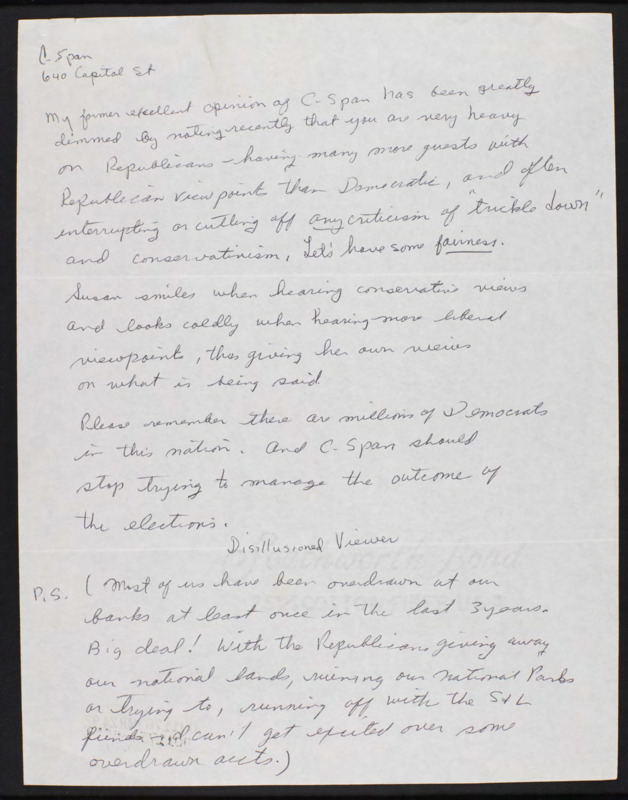 C-Span
640 Capital St
My former excellent opinion of C-Span has been greatly
dimmed by noting recently that you are very heavy
on Republicans - having many more guests with
Republican viewpoint than Democratic, and often
interrupting or cutting off any criticism of "trickle down"
and conservatinism. Let's have some fairness.
Susan smiles when hearing conservative views
and looks coldly when hearing more liberal
viewpoints, thus giving her own views
on what is being said
Please remember there are millions of Democrats
in this nation. And C-Span should
stop trying to manage the outcome of
the elections.
Disillusioned Viewer
P.S. (Most of us have been overdrawn at our
banks at least once in the last 3 years.
Big deal! With the Republicans giving away
our national lands, ruining our national Parks
or trying to, running off with the S+L
funds - I can't get excited over some
overdrawn accts.)